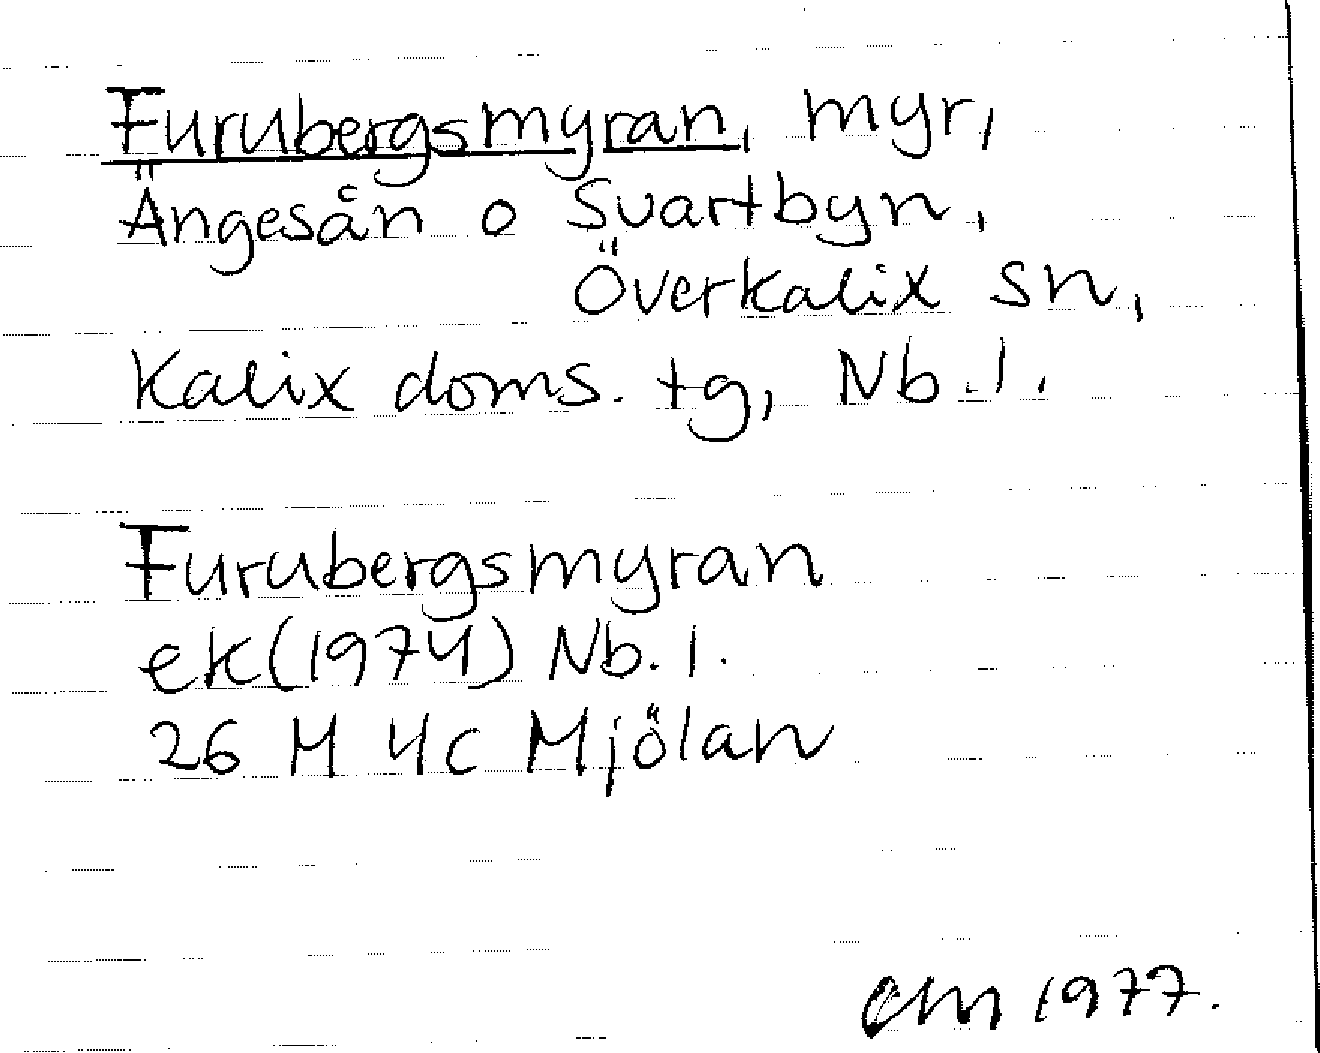 Furubergsmyran, myr,
Ängesån o Svartbyn,
Överkalix sn,
Kalix doms. tg, Nb. l.
Furubergsmyran
ek (1974) Nb. l.
26 M 4c Mjölan
1977.